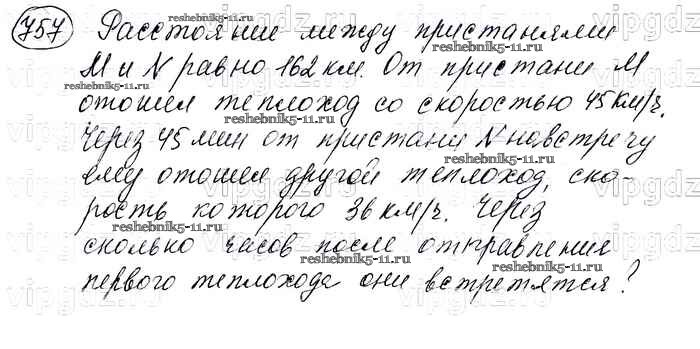 757 Расстояние между пристанями
М и N равно 162 км. От пристани М
отошел теплоход со скоростью 45 км/ч.
Через 45 мин от пристани N навстречу
ему отошел другой теплоход, ско-
рость которого 36 км/ч. Через
сколько часов после отправления
первого теплохода они встретятся?
reshebnik5-11.ru
reshebnik5-11.ru
reshebnik5-11.ru
reshebnik5-11.ru
reshebnik5-11.ru
reshebnik5-11.ru
reshebnik5-11.ru